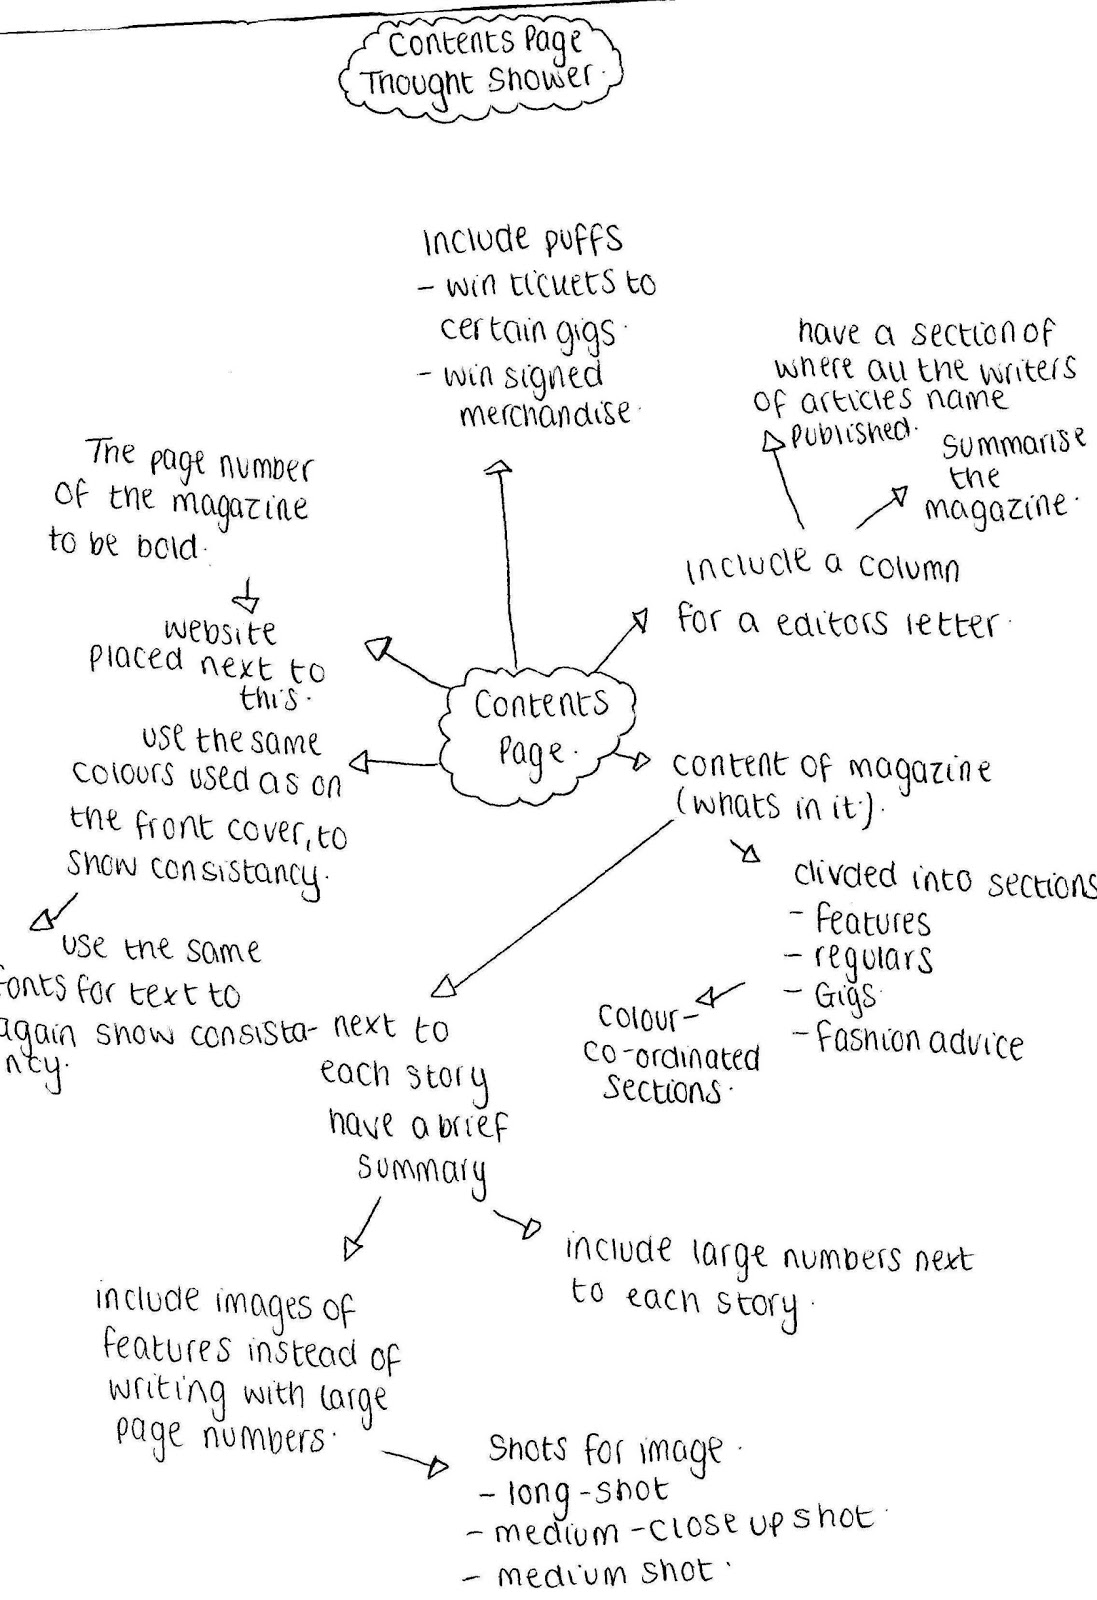 Contents Page
Thought Shower.
Include puffs
- win tickets to
certain gigs.
- win signed
merchandise.
have a section of
where all the writers
of articles name
published.
summarise
the
magazine.
include a column
for a editors letter.
The page number
of the magazine
to be bold.
website
placed next to
this.
Contents
Page.
use the same
colours used as on
the front cover, to
show consistancy.
content of magazine
(whats in it).
divded into sections
- features
- regulars
- Gigs
- fashion advice
colour-
co-ordinated
sections.
use the same
fonts for text to
again show consista-
ncy.
next to
each story
have a brief
summary
include large numbers next
to each story.
include images of
features instead of
writing with large
page numbers.
Shots for image.
- long-shot
- medium-close up shot.
- medium shot.